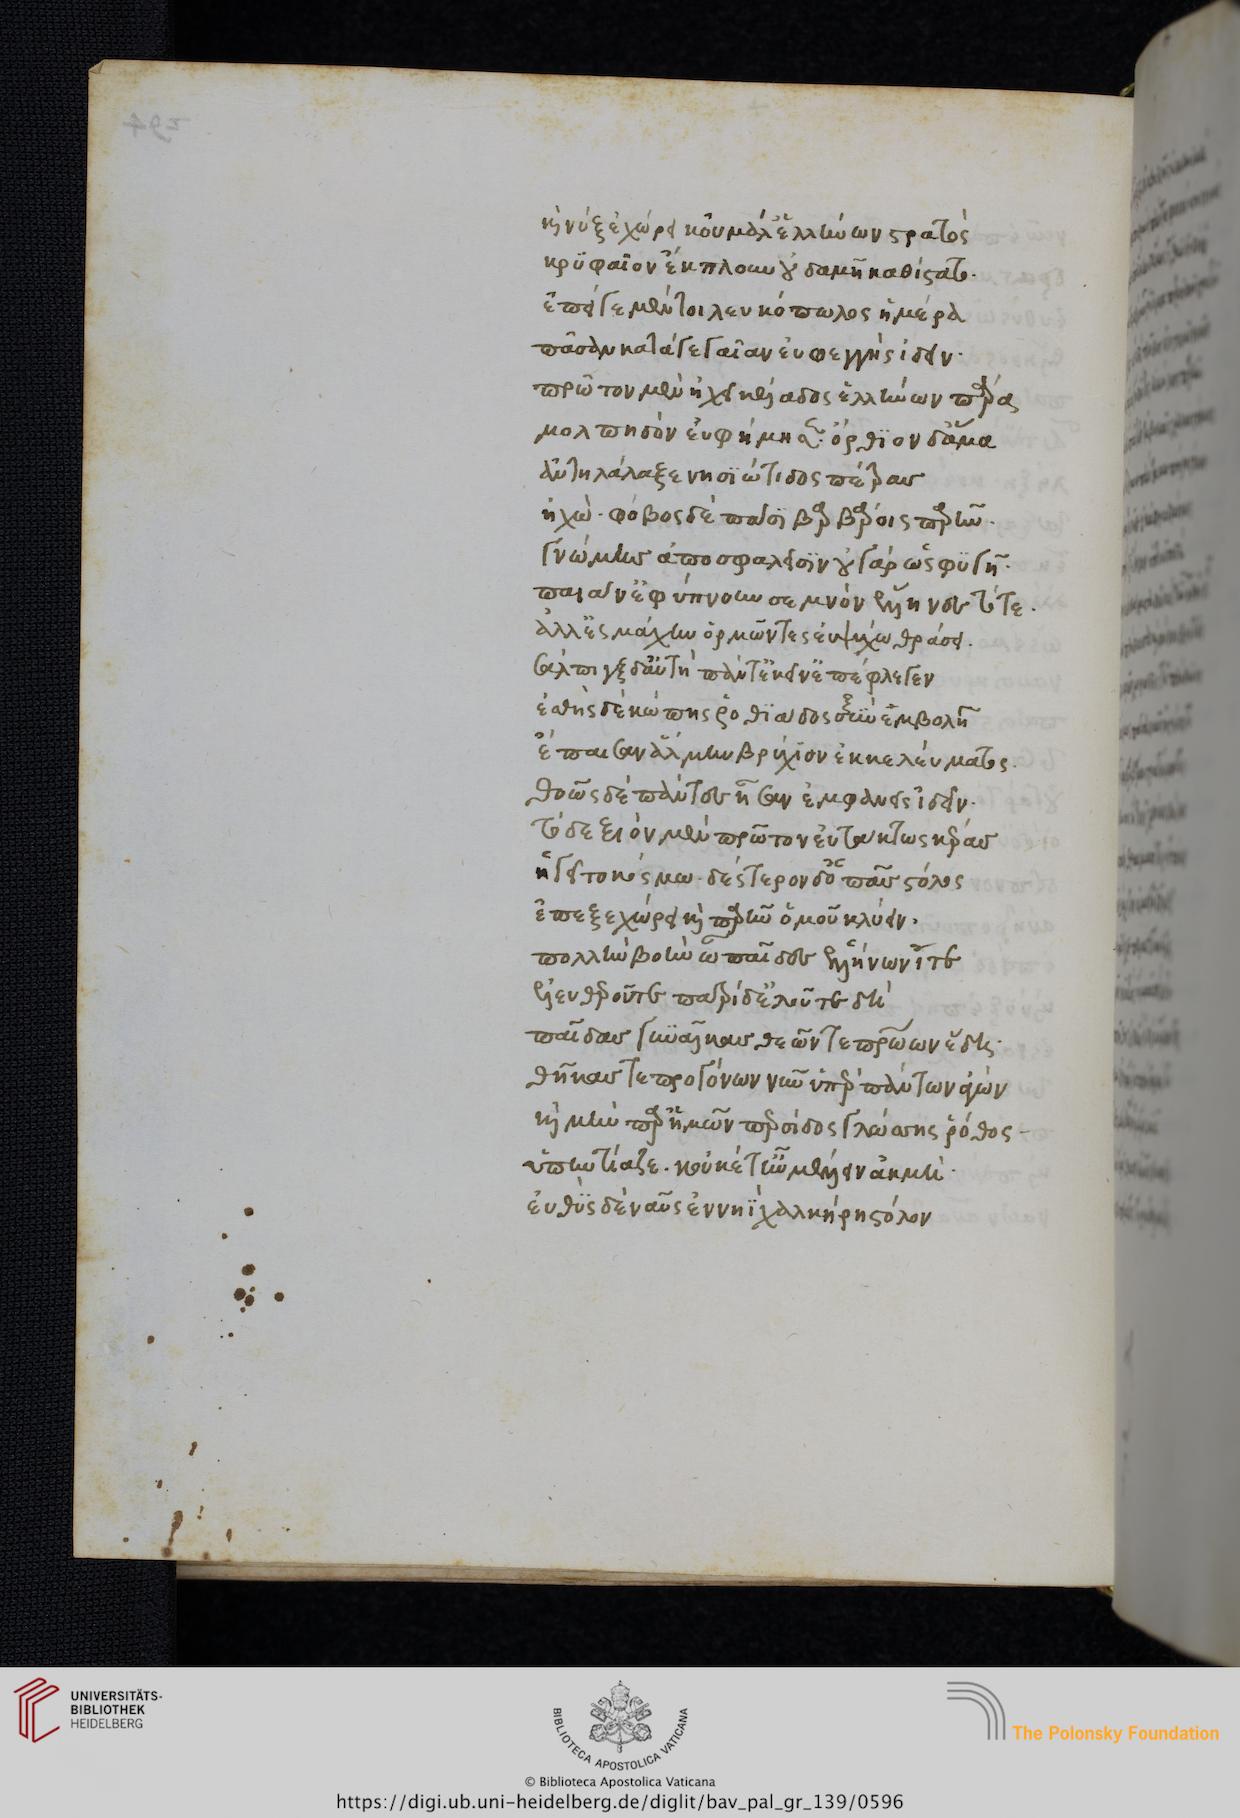 καὶ νὺξ ἐχώρει κοὐ μάλ' ἑλλήνων στρατὸς
κρυφαῖον ἔκπλουν οὐδαμῇ καθίστατο·
ἐπεί γε μέντοι λευκόπωλος ἡμέρα
πᾶσαν κατέσχε γαῖαν εὐφεγγὴς ἰδεῖν·
πρῶτον μὲν ἠχεῖ κέλαδος ἑλλήνων πάρα
μολπηδὸν εὐφήμησεν· ὄρθιον δ' ἅμα
ἀντηλάλαξε νησιώτιδος πέτρας
ἠχώ· φόβος δὲ πᾶσι βαρβάροις παρῆν·
γνώμης ἀποσφαλεῖσιν οὐ γὰρ ὡς φυγῇ·
παιᾶν' ἐφύμνουν σεμνὸν ἕλληνες τότε·
ἀλλ' ἐς μάχην ὁρμῶντες εὐψύχω θράσει·
σάλπιγξ δ' ἀϋτῇ πάντ' ἐκεῖν' ἐπέφλεγεν
εὐθὺς δὲ κώπης ῥοθιάδος ξυνεμβολῇ
ἔπαισαν ἅλμην βρύχιον ἐκ κελεύματος·
θοῶς δὲ πάντες ἦσαν ἐμφανεῖς ἰδεῖν·
τὸ δεξιὸν μὲν πρῶτον εὐτάκτως κέρας
ἡγεῖτο κόσμω· δεύτερον δ' ὁ πᾶς στόλος
ἐπεξεχώρει καὶ παρῆν ὁμοῦ κλύειν·
πολλὴν βοὴν ὦ παῖδες ἑλλήνων ἴτε
ἐλευθεροῦτε πατρίδ' ἐλευθεροῦτε δὲ
παῖδας γυναῖκας θεῶν τε πατρώων ἕδη·
θήκας τε προγόνων νῦν ὑπὲρ πάντων ἀγών
καὶ μὴν παρ' ἡμῶν περσίδος γλώσσης ῥόθος
ὑπηντίαζε· κοὐκέτ' ἦν μέλλειν ἀκμή·
εὐθὺς δὲ ναῦς ἐν νηῒ χαλκήρη στόλον
UNIVERSITÄTS-
BIBLIOTHEK
HEIDELBERG
BIBLIOTECA APOSTOLICA VATICANA
The Polonsky Foundation
© Biblioteca Apostolica Vaticana
https://digi.ub.uni-heidelberg.de/diglit/bav_pal_gr_139/0596